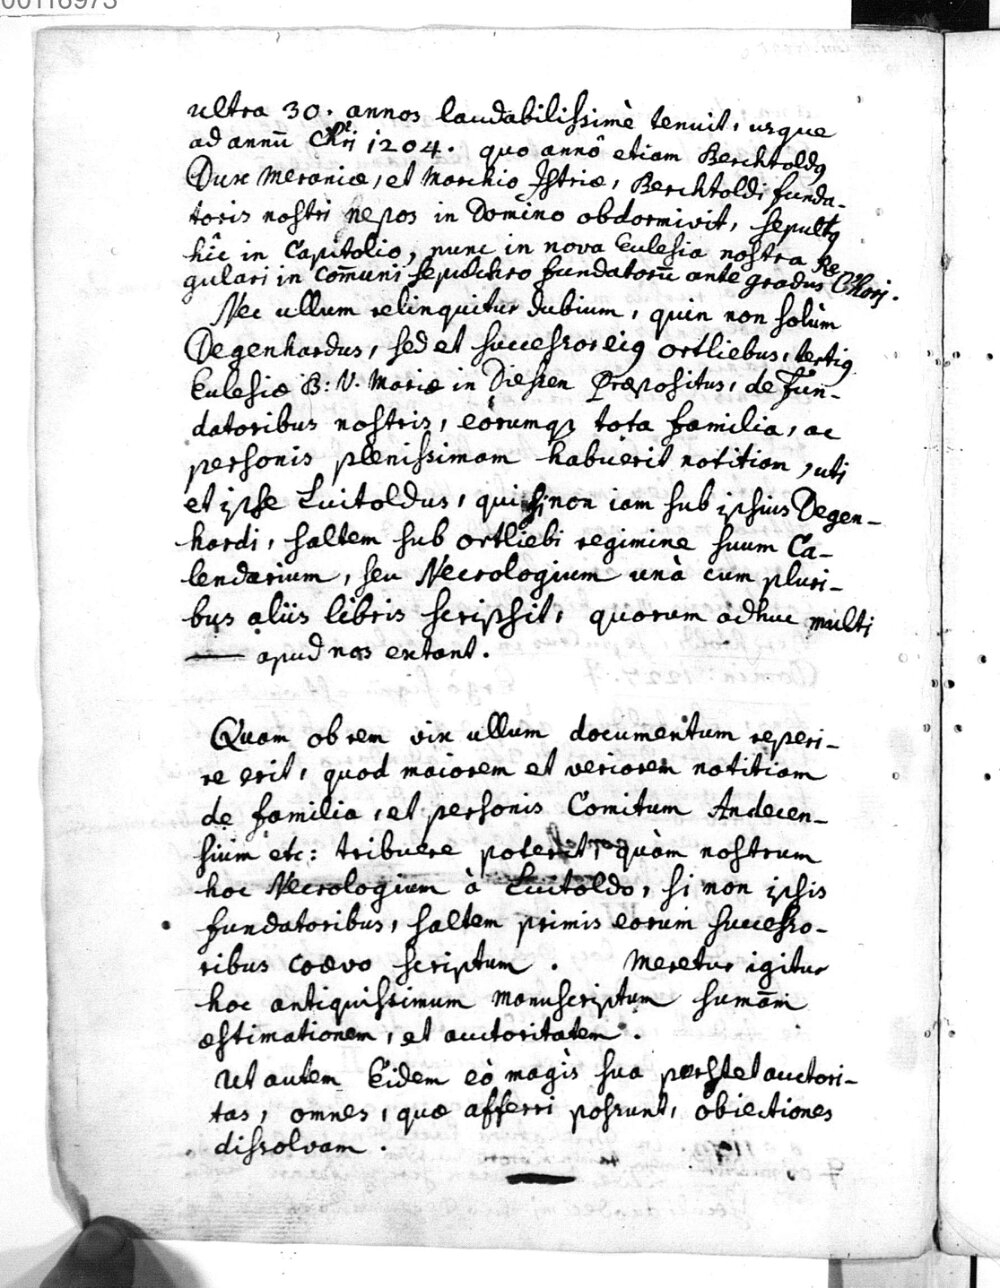 00116973
ultra 30. annos laudabilissimè tenuit, usque
ad annū Chri 1204. quo annô etiam Berchtoldq
Dux Meraniæ, et Marchio Istriæ, Berchtoldi funda-
toris nostri nepos in Domino obdormivit, sepultq
hîc in Capitolio, nunc in nova Eculesia nostra Re
gulari in Com̄uni sepulchro fundatorū ante gradus Chori.
Nec ullum relinquitur dubium, quin non solùm
Degenhardus, sed et successor eiq ortliebus, tertiq
Eculesiæ B: V. Mariæ in Diessen Præpositus, de fun-
datoribus nostris, eorumqz tota familia, ac
personis plenissimam habuerit notitiam, uti
et ipse Luitoldus, qui si non iam sub ipsius Degen-
hardi, saltem sub ortliebi regimine suum Ca-
lendarium, seu Necrologium unà cum pluri-
bus aliis libris scripsit, quorum adhuc multi
apud nos extant.
Quam ob rem vix ullum documentum reperi-
re erit, quod maiorem et veriorem notitiam
de familia, et personis Comitum Andecen-
sium etc: tribuere poterit, quàm nostrum
hoc Necrologium à Luitoldo, si non ipsis
fundatoribus, saltem primis eorum successo-
ribus coævo scriptum. Meretur igitur
hoc antiquissimum manuscriptum sumām
æstimationem, et auctoritatem.
Ut autem Eidem eò magis sua perstet auctori-
tas, omnes, quæ afferri possunt, obiectiones
dissolvam.